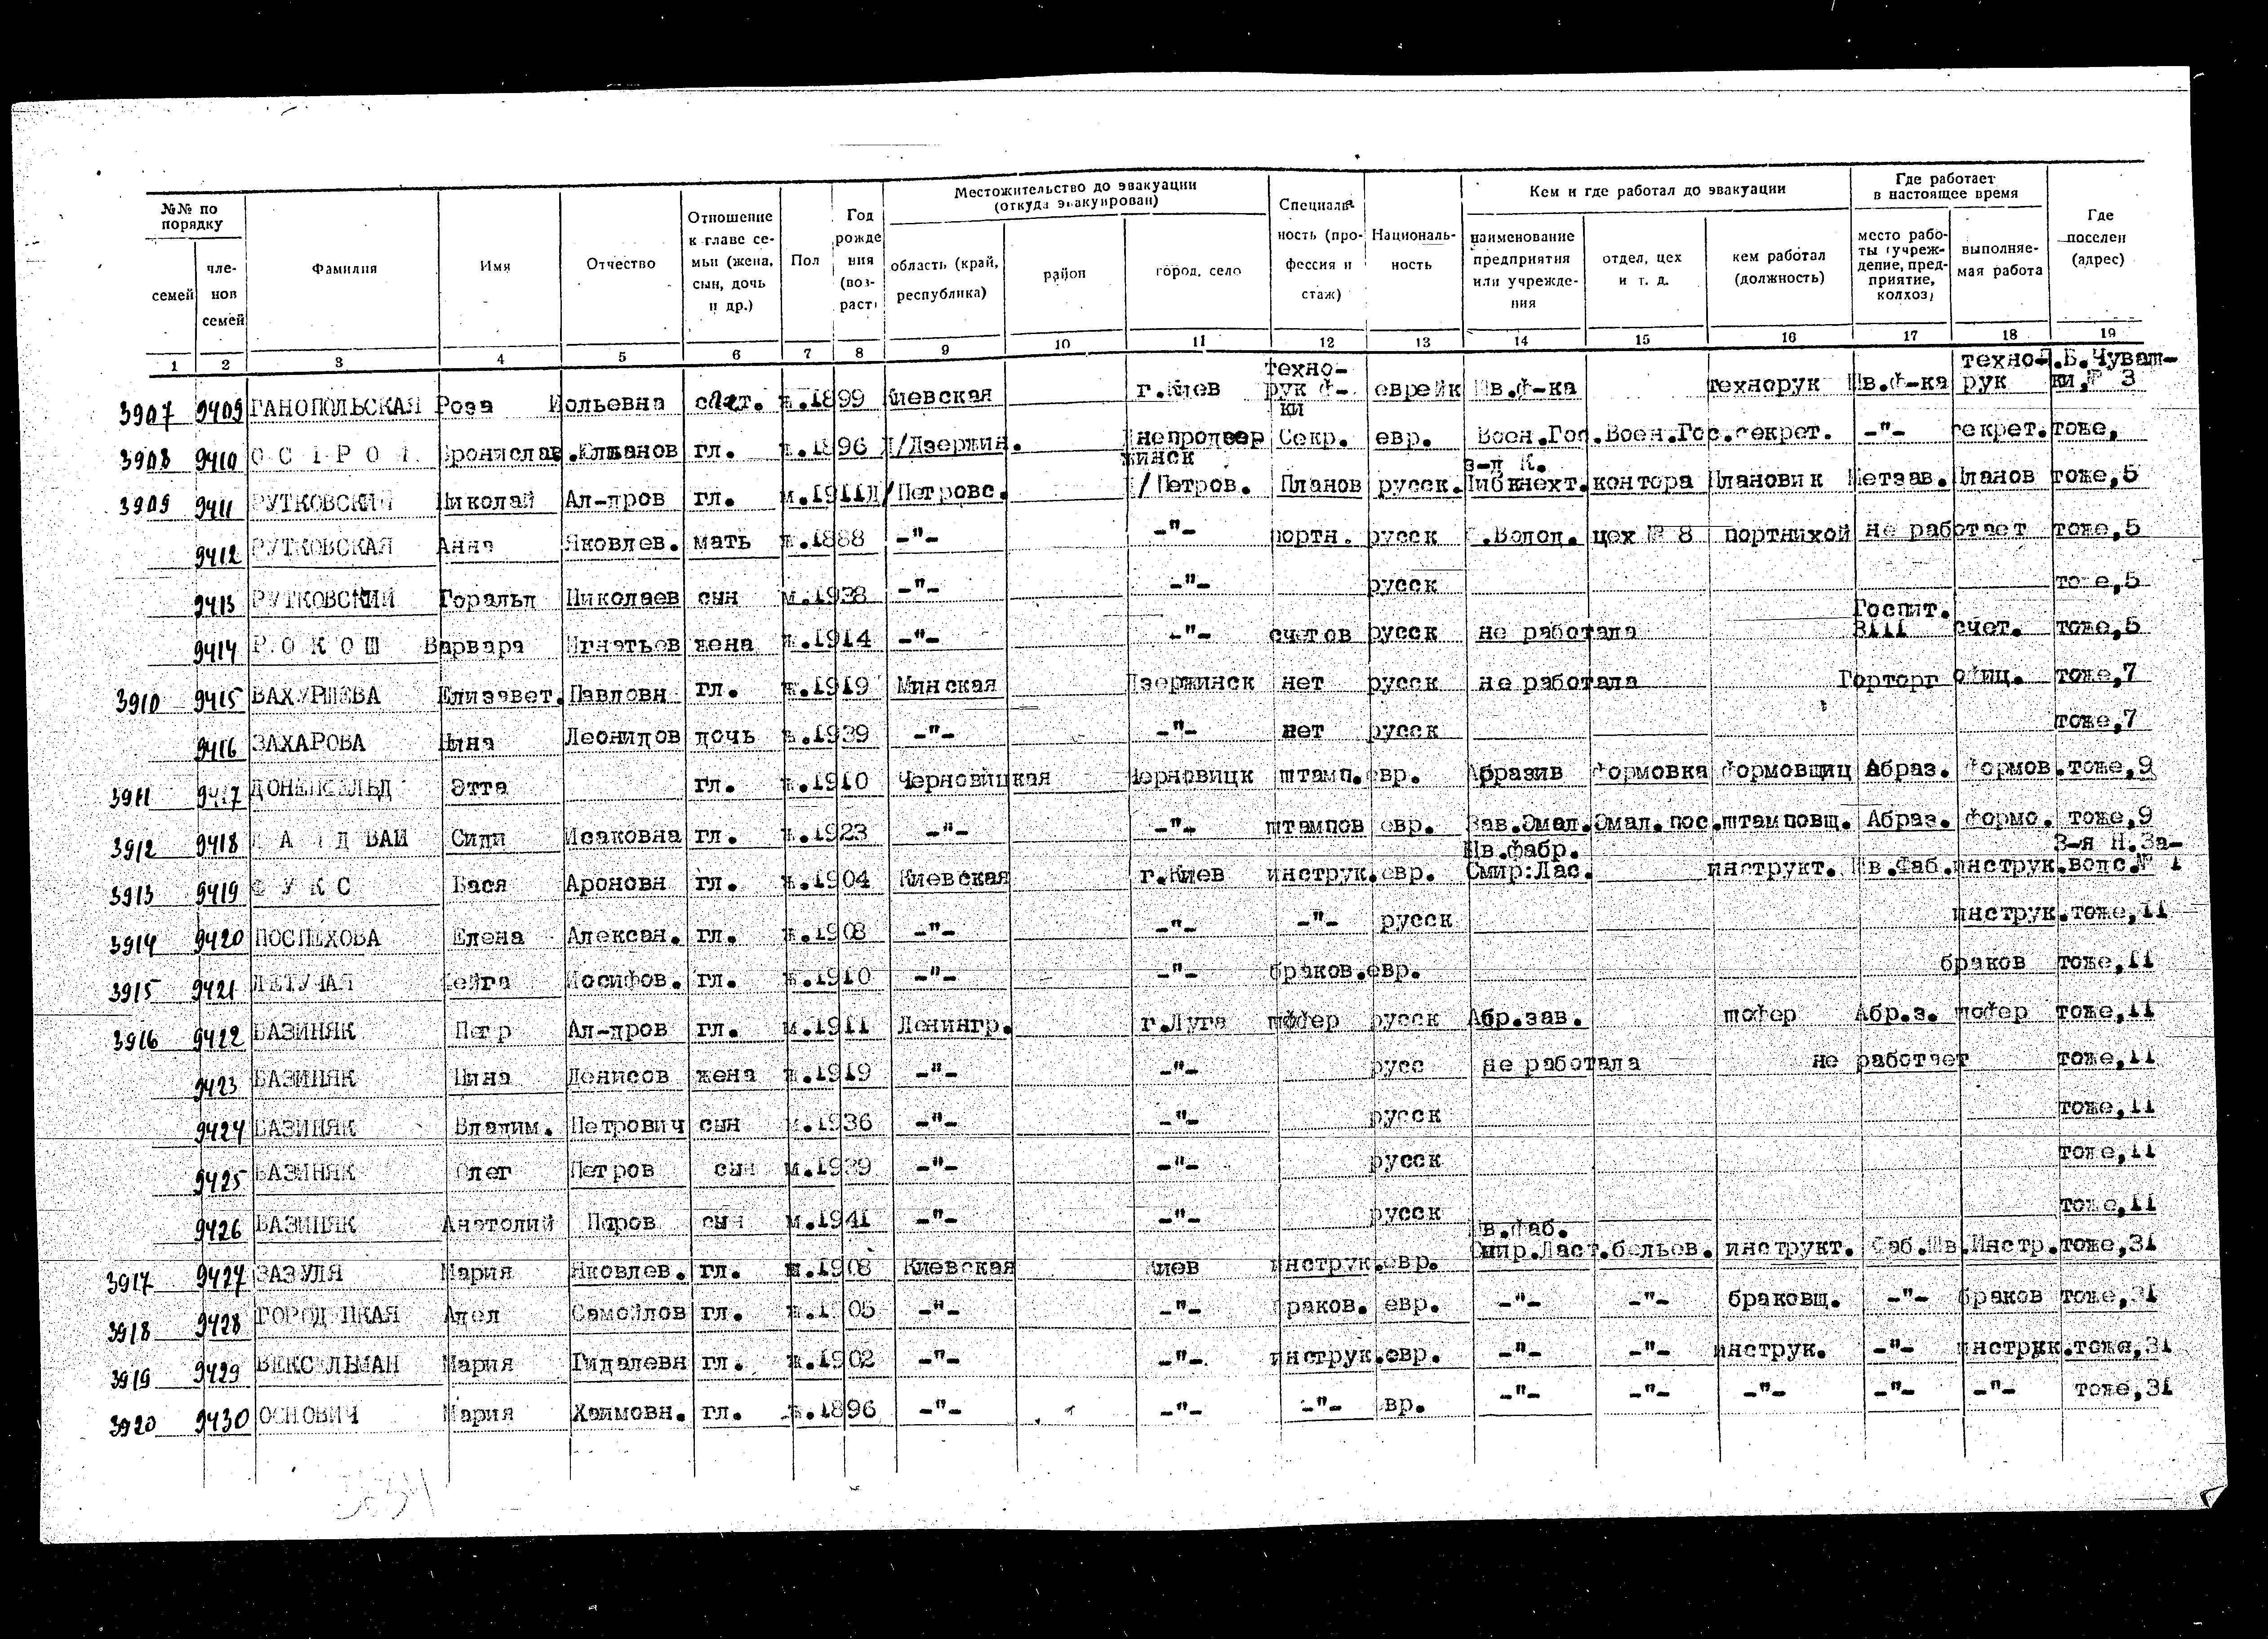 №№ по порядку
семей
членов семей
Фамилия
Имя
Отчество
Отношение к главе семьи (жена, сын, дочь и др.)
Пол
Год рождения (возраст)
Местожительство до эвакуации (откуда эвакуирован)
область (край, республика)
район
город, село
Специальность (профессия и стаж)
Национальность
Кем и где работал до эвакуации
наименование предприятия или учреждения
отдел, цех и т. д.
кем работал (должность)
Где работает в настоящее время
место работы (учреждение, предприятие, колхоз)
выполняемая работа
Где поселен (адрес)
1 2 3 4 5 6 7 8 9 10 11 12 13 14 15 16 17 18 19
3907 9409 ГАНОПОЛЬСКАЯ Роза ж.1899 Киевская г.Киев технорук ф-ки еврейк Шв.ф-ка технорук Шв.ф-ка технорук Чувашки,№ 3
3908 9410 гл. 1896 Д/Дзержин. Секр. евр. Воен.Гос. Воен.Гос. секрет. -"- секрет. тоже,
3909 9411 РУТКОВСКИЙ Николай Ал-дров гл. м.1911 Д/Петровс. Д/Петров. Планов русск. з-д К. Либкнехт. контора Плановик Метзав. Планов тоже,5
9412 РУТКОВСКАЯ Анна Яковлев. мать ж.1888 -"- -"- портн. русск цех № 8 портнихой не работает тоже,5
9413 РУТКОВСКИЙ Горальд Николаев сын м.1938 -"- -"- русск тоже,5
9414 Р О К О Ш Варвара Игнатьев жена ж.1914 -"- -"- счетов русск не работала Госпит. счет. тоже,5
3910 9415 ВАХУРШЕВА Елизавет. Павловн гл. ж.1919 Минская Дзержинск нет русск не работала Горторг офиц. тоже,7
9416 ЗАХАРОВА Нина Леонидов дочь ж.1939 -"- -"- нет русск тоже,7
3911 9417 Этта гл. ж.1910 Черновицкая Черновицк штамп. евр. Абразив формовка формовщиц Абраз. формов. тоже,9
3912 9418 Сиди Исаковна гл. ж.1923 -"- -"- штампов евр. Зав.Эмал. Эмал.пос. штамповщ. Абраз. формо. тоже,9
3913 9419 Ф У К С Бася Ароновн гл. ж.1904 Киевская г.Киев инструк. евр. Шв.фабр. Смир:Лас. инструкт. Шв.Фаб. инструк. 3-я Н.Заводс.№ 1
3914 9420 ПОСПЕХОВА Елена Алексан. гл. ж.1908 -"- -"- -"- русск инструк. тоже,11
3915 9421 ЛЕТУЧАЯ Иосифов. гл. ж.1910 -"- -"- браков. евр. браков тоже,11
3916 9422 БАЗИНЯК Петр Ал-дров гл. м.1911 Ленингр. г.Луга шофер русск Абр.зав. шофер Абр.з. шофер тоже,11
9423 БАЗИНЯК Нина Денисов жена ж.1919 -"- -"- русс не работала не работает тоже,11
9424 БАЗИНЯК Владим. Петрович сын м.1936 -"- -"- русск тоже,11
9425 БАЗИНЯК Олег Петров сын м.1939 -"- -"- русск тоже,11
9426 БАЗИНЯК Анатолий Перов сын м.1941 -"- -"- русск тоже,11
3917 9427 ЗАЗУЛЯ Мария Яковлев. гл. ж.1908 Киевская Киев инструк. евр. Шв.фаб. Смир.Ласт. бельев. инструкт. Фаб.Шв. Инстр. тоже,31
3918 9428 Адел Самойлов гл. ж.1905 -"- -"- браков. евр. -"- -"- браковщ. -"- браков тоже,31
3919 9429 ВЕКСЕЛЬМАН Мария Гидалевн гл. ж.1902 -"- -"- инструк. евр. -"- -"- инструк. -"- инструк. тоже,31
3920 9430 ОСНОВИЧ Мария Хаимовн. гл. ж.1896 -"- -"- -"- евр. -"- -"- -"- -"- -"- тоже,31